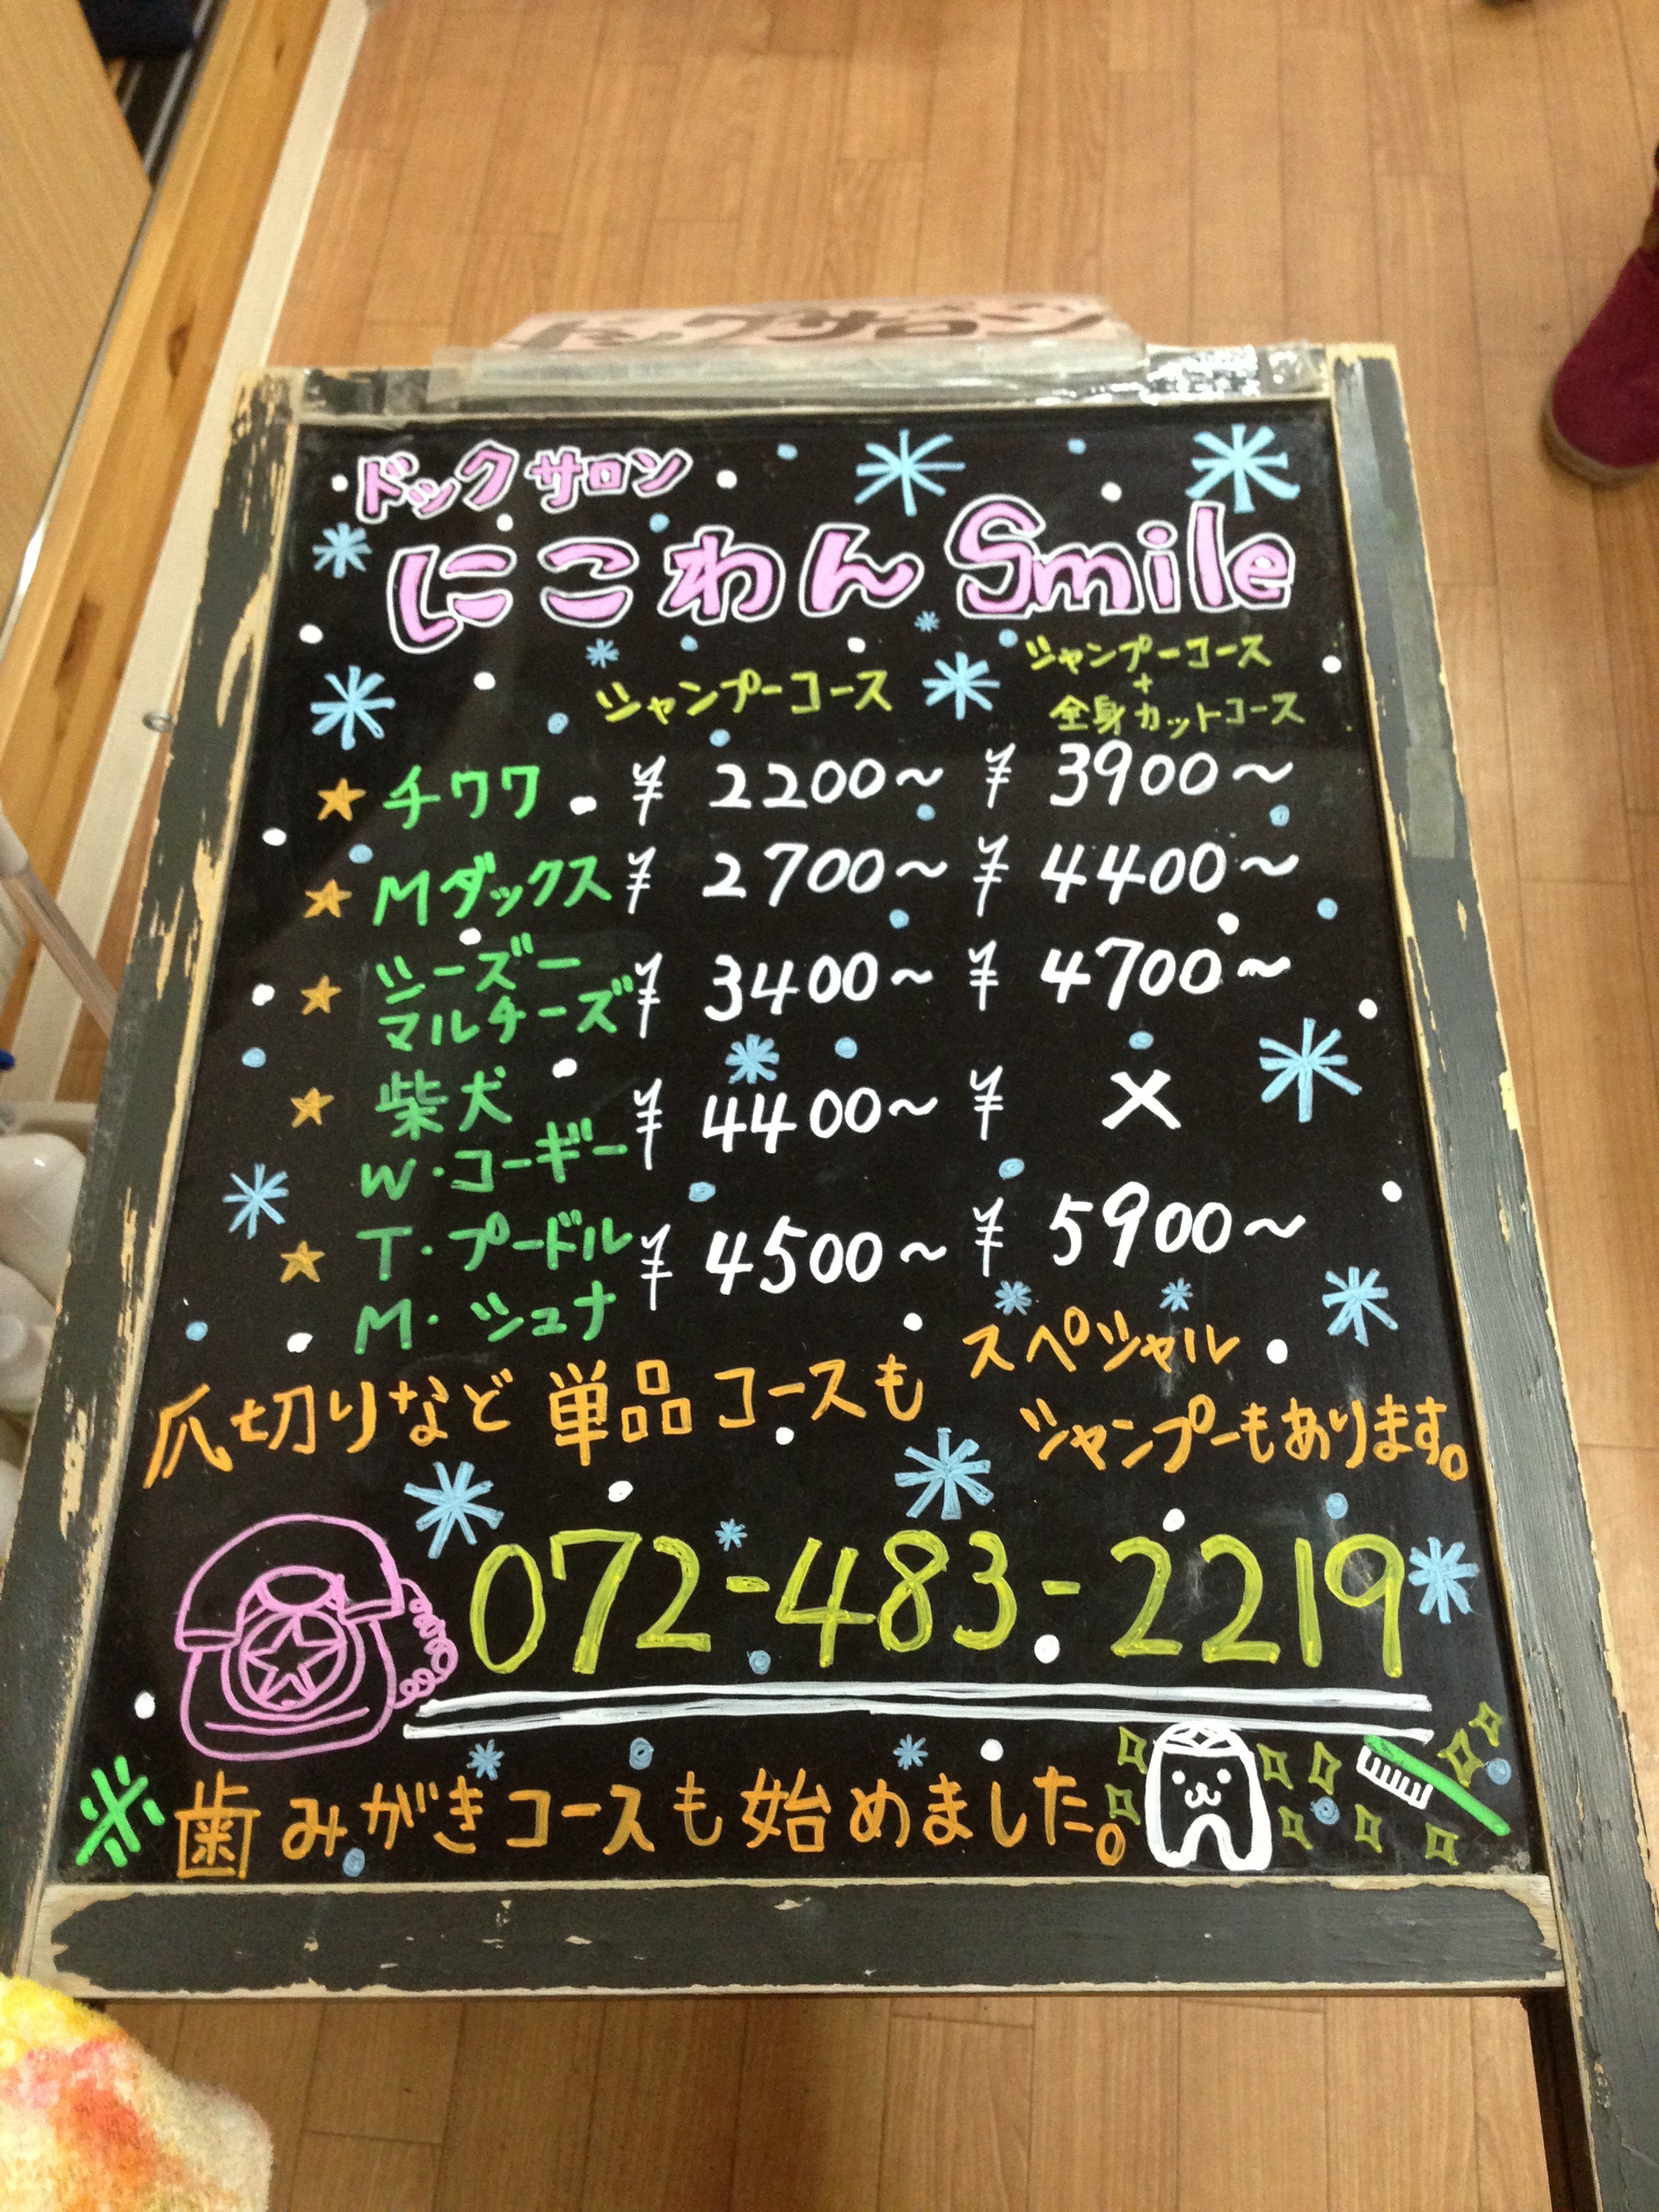 ドックサロン
ドックサロン
にこわん Smile
シャンプーコース
シャンプーコース
+
全身カットコース
★ チワワ ¥ 2200～ ¥ 3900～
★ Mダックス ¥ 2700～ ¥ 4400～
★ シーズー
マルチーズ ¥ 3400～ ¥ 4700～
★ 柴犬
W・コーギー ¥ 4400～ ¥ ×
★ T・プードル
M・シュナ ¥ 4500～ ¥ 5900～
爪切りなど単品コースも スペシャル
シャンプーもあります。
072-483-2219
※ 歯みがきコースも始めました。